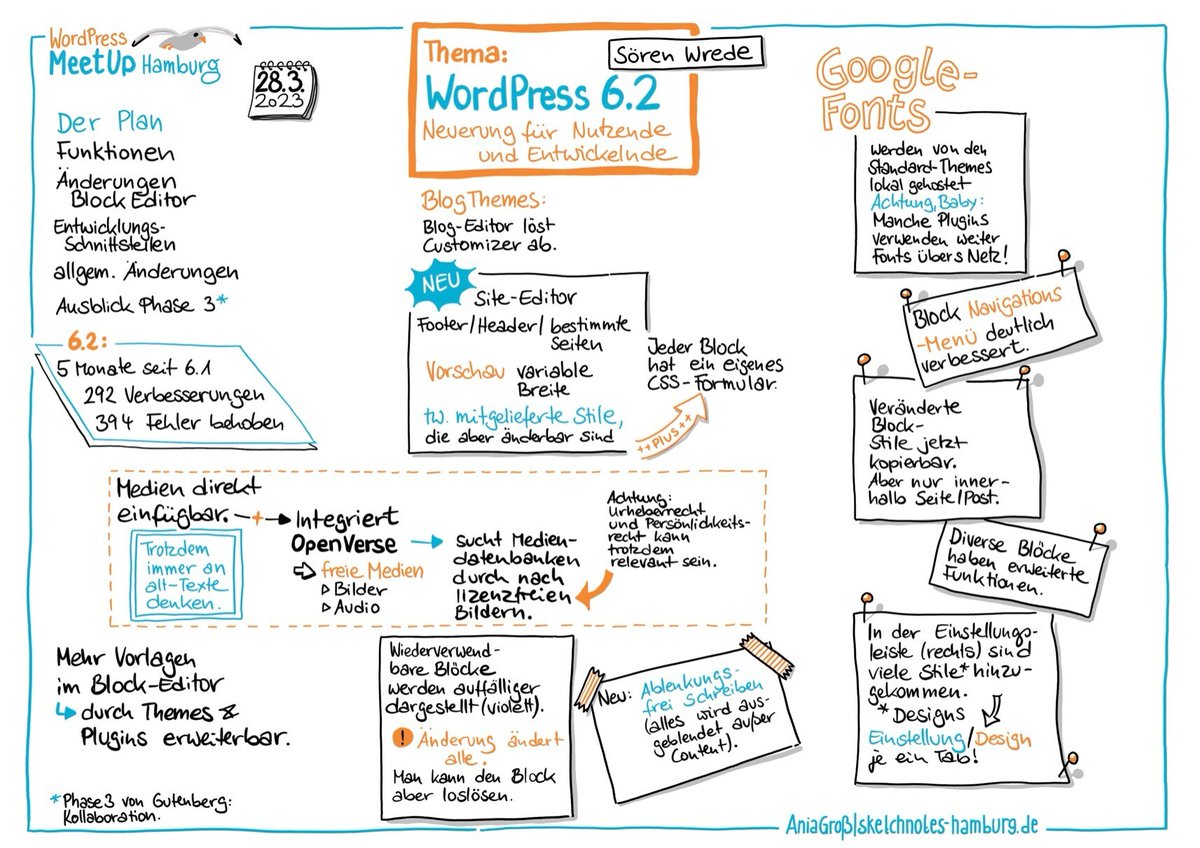 WordPress
MeetUp Hamburg
28.3.
2023
Der Plan
Funktionen
Änderungen
Block Editor
Entwicklungs-
Schnittstellen
allgem. Änderungen
Ausblick Phase 3*
6.2:
5 Monate seit 6.1
292 Verbesserungen
394 Fehler behoben
Thema:
WordPress 6.2
Neuerung für Nutzende
und Entwickelnde
Sören Wrede
Blog Themes:
Blog-Editor löst
Customizer ab.
NEU
Site-Editor
Footer/Header/bestimmte
Seiten
Vorschau variable
Breite
tw. mitgelieferte Stile,
die aber änderbar sind
++Plus++
Jeder Block
hat ein eigenes
CSS-Formular.
Google-
Fonts
Werden von den
Standard-Themes
lokal gehostet
Achtung, Baby:
Manche Plugins
verwenden weiter
Fonts übers Netz!
Block Navigations
-Menü deutlich
verbessert.
Veränderte
Block-
Stile jetzt
kopierbar.
Aber nur inner-
halb Seite/Post.
Diverse Blöcke
haben erweiterte
Funktionen.
In der Einstellungs-
leiste (rechts) sind
viele Stile* hinzu-
gekommen.
*Designs
Einstellung/Design
je ein Tab!
Medien direkt
einfügbar. +
Trotzdem
immer an
alt-Texte
denken.
Integriert
OpenVerse
freie Medien
Bilder
Audio
sucht Medien-
datenbanken
durch nach
lizenzfreien
Bildern.
Achtung:
Urheberrecht
und Persönlichkeits-
recht kann
trotzdem
relevant sein.
Mehr Vorlagen
im Block-Editor
durch Themes &
Plugins erweiterbar.
*Phase 3 von Gutenberg:
Kollaboration.
Wiederverwend-
bare Blöcke
werden auffälliger
dargestellt (violett).
! Änderung ändert
alle.
Man kann den Block
aber loslösen.
Neu: Ablenkungs-
frei schreiben
(alles wird aus-
geblendet, außer
Content).
Ania Groß|sketchnotes-hamburg.de